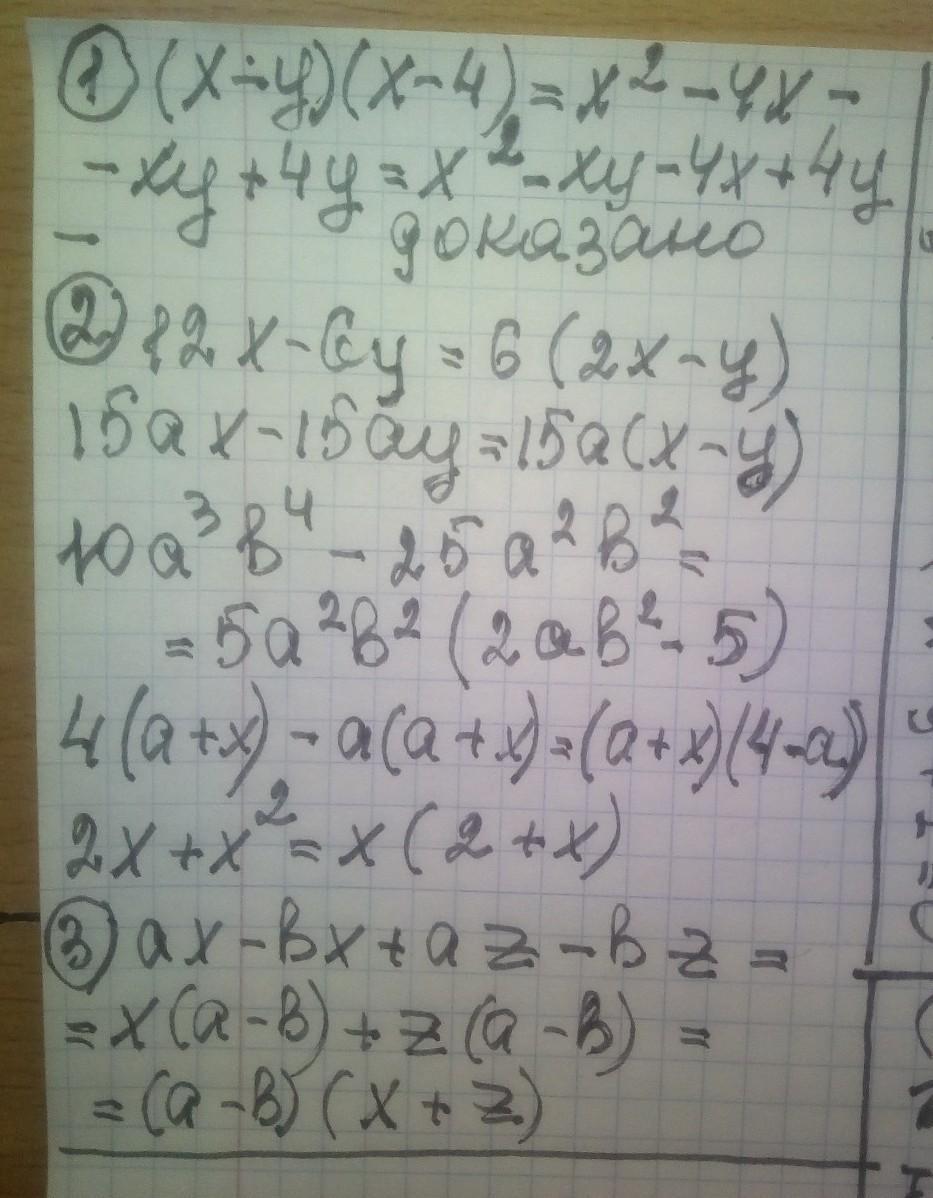 ① (x-y)(x-4)=x²-4x-
-xy+4y=x²-xy-4x+4y
- доказано
② 12x-6y=6(2x-y)
15ax-15ay=15a(x-y)
10a³b⁴-25a²b²=
=5a²b²(2ab²-5)
4(a+x)-a(a+x)=(a+x)(4-a)
2x+x²=x(2+x)
③ ax-bx+az-bz=
=x(a-b)+z(a-b)=
=(a-b)(x+z)